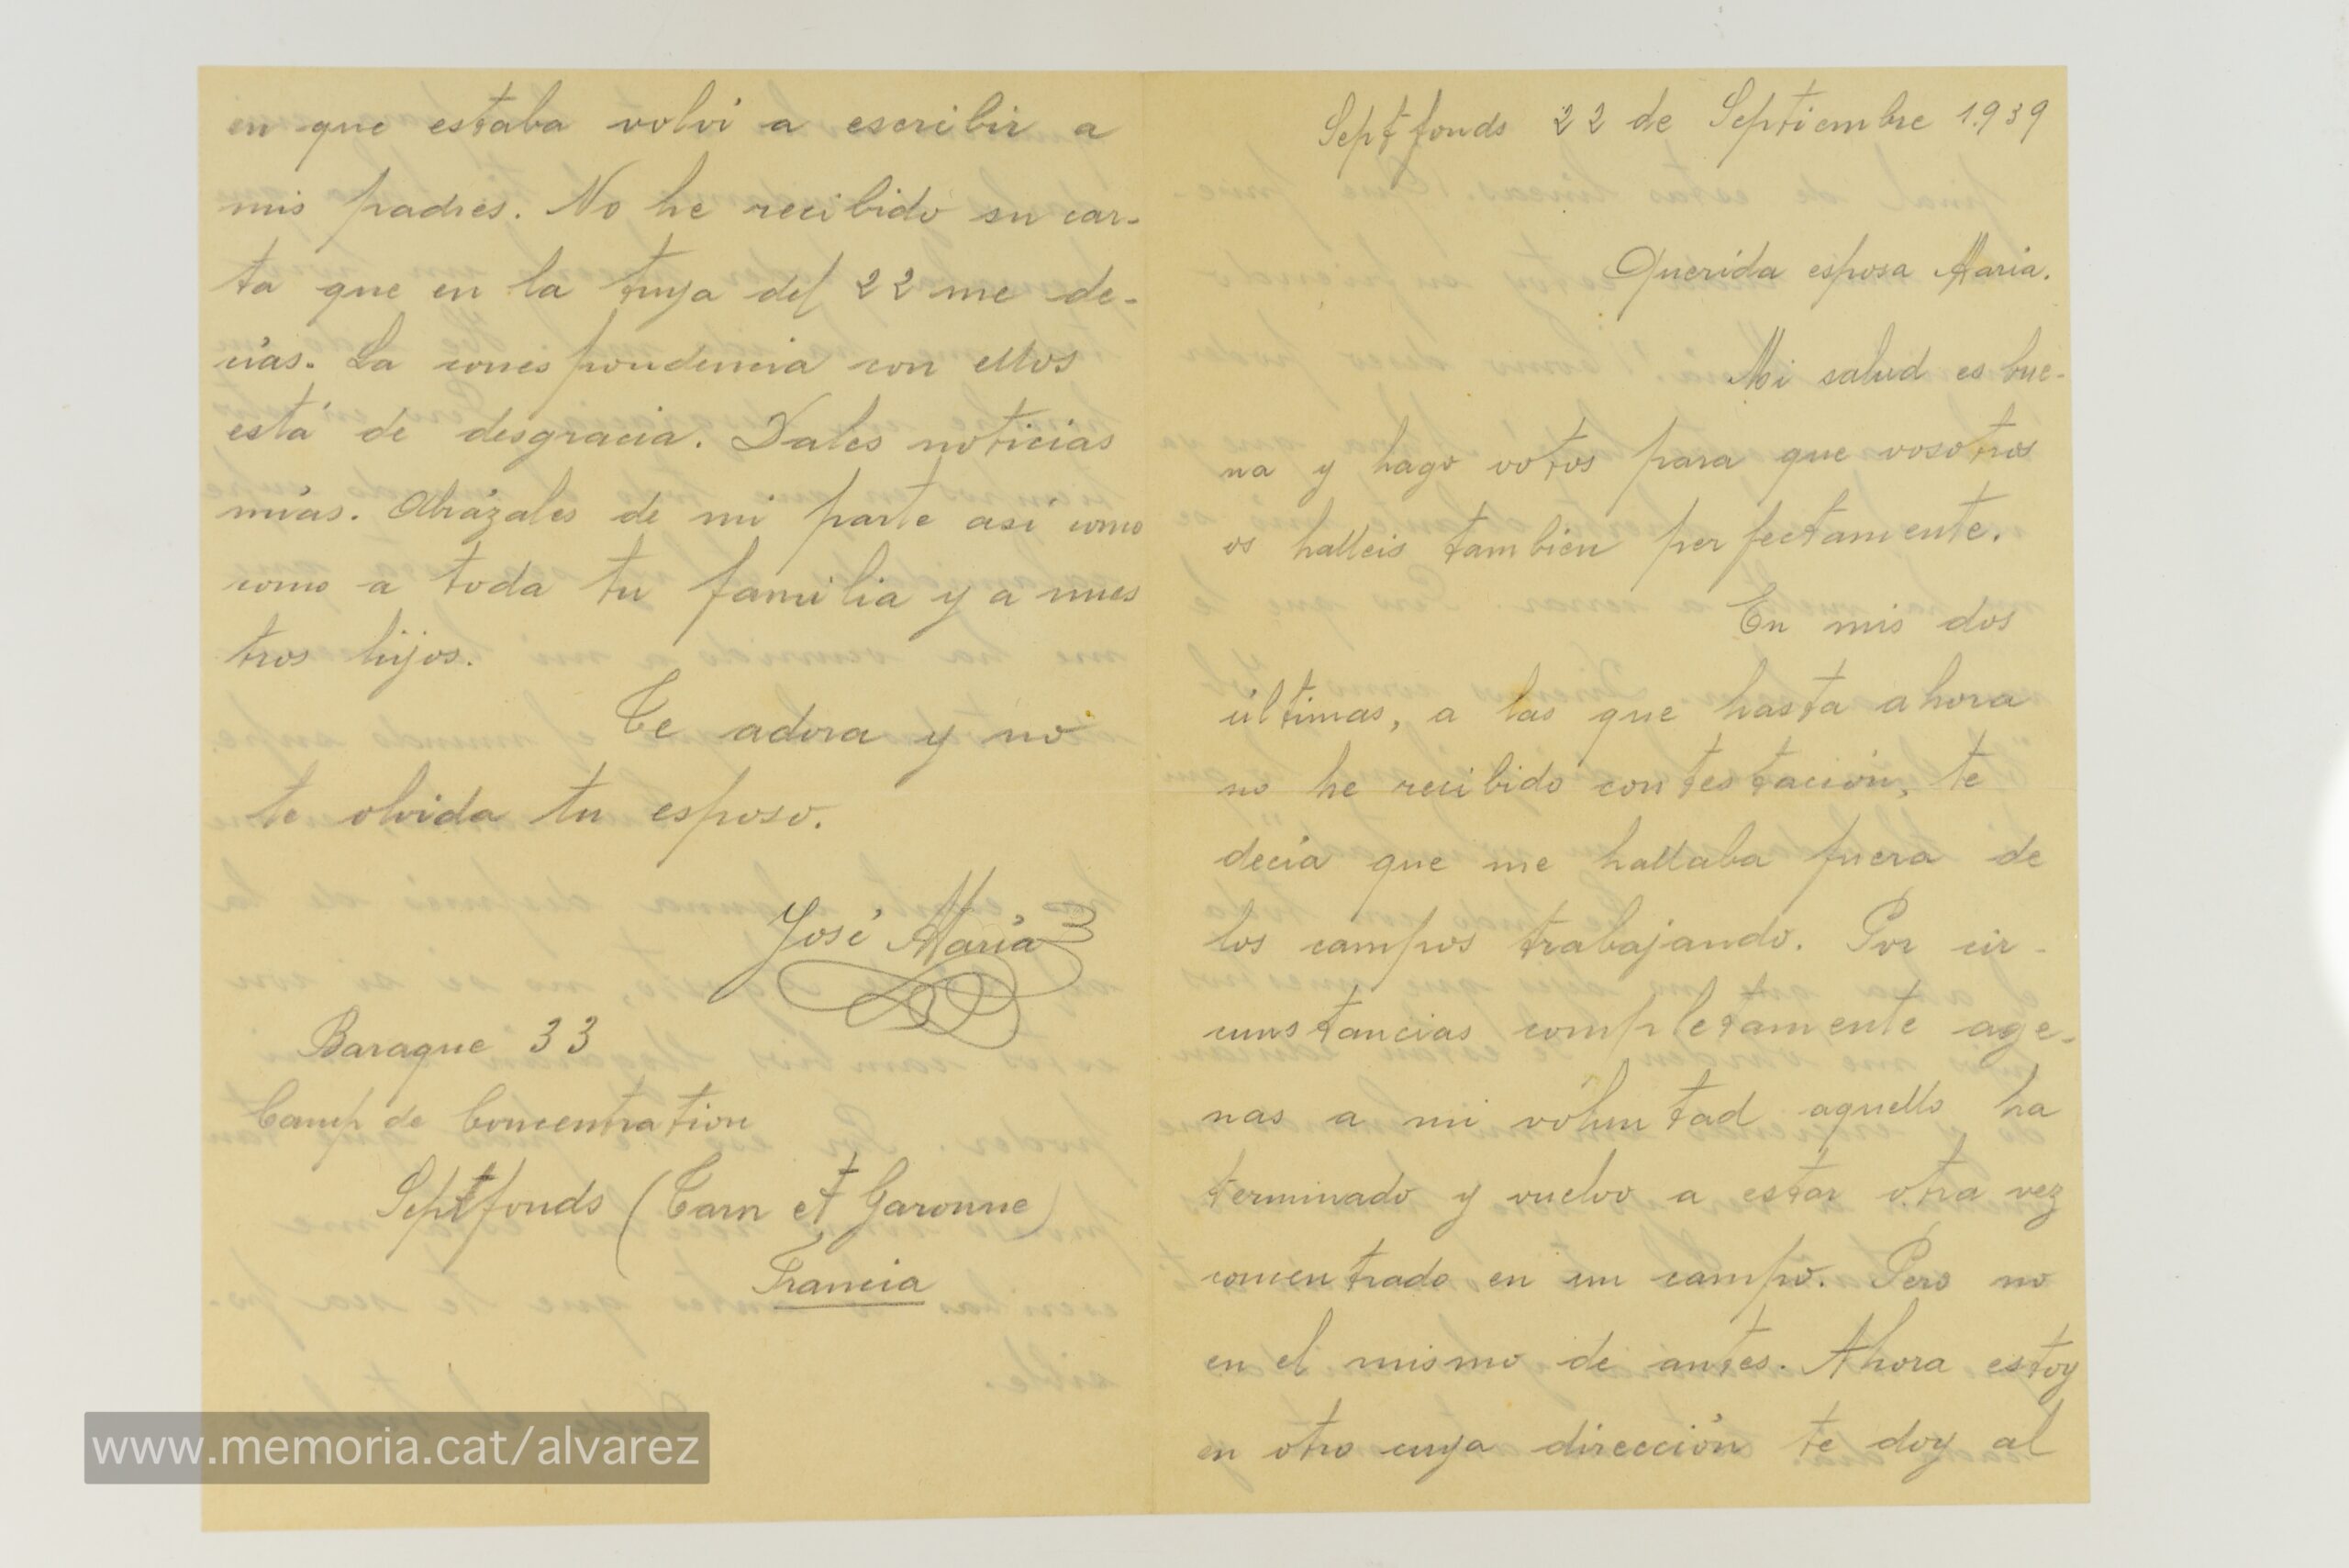 Septfonds 22 de Septiembre 1.939
Querida esposa Maria.
Mi salud es bue-
na y hago votos para que vosotros
os halleis tambien perfectamente.
En mis dos
últimas, a las que hasta ahora
no he recibido contestación, te
decía que me hallaba fuera de
los campos trabajando. Por cir-
cunstancias completamente age-
nas a mi voluntad aquello ha
terminado y vuelvo a estar otra vez
concentrado en un campo. Pero no
en el mismo de antes. Ahora estoy
en otro cuya dirección te doy al
en que estaba volví a escribir a
mis padres. No he recibido su car-
ta que en la tuya del 22 me de-
cías. La correspondencia con ellos
está de desgracia. Dales noticias
mías. Abrázales de mi parte así como
como a toda tu familia y a nues
tros hijos.
Te adora y no
te olvida tu esposo.
José María
Baraque 33
Camp de Concentration
Septfonds (Tarn et Garonne)
Francia
www.memoria.cat/alvarez